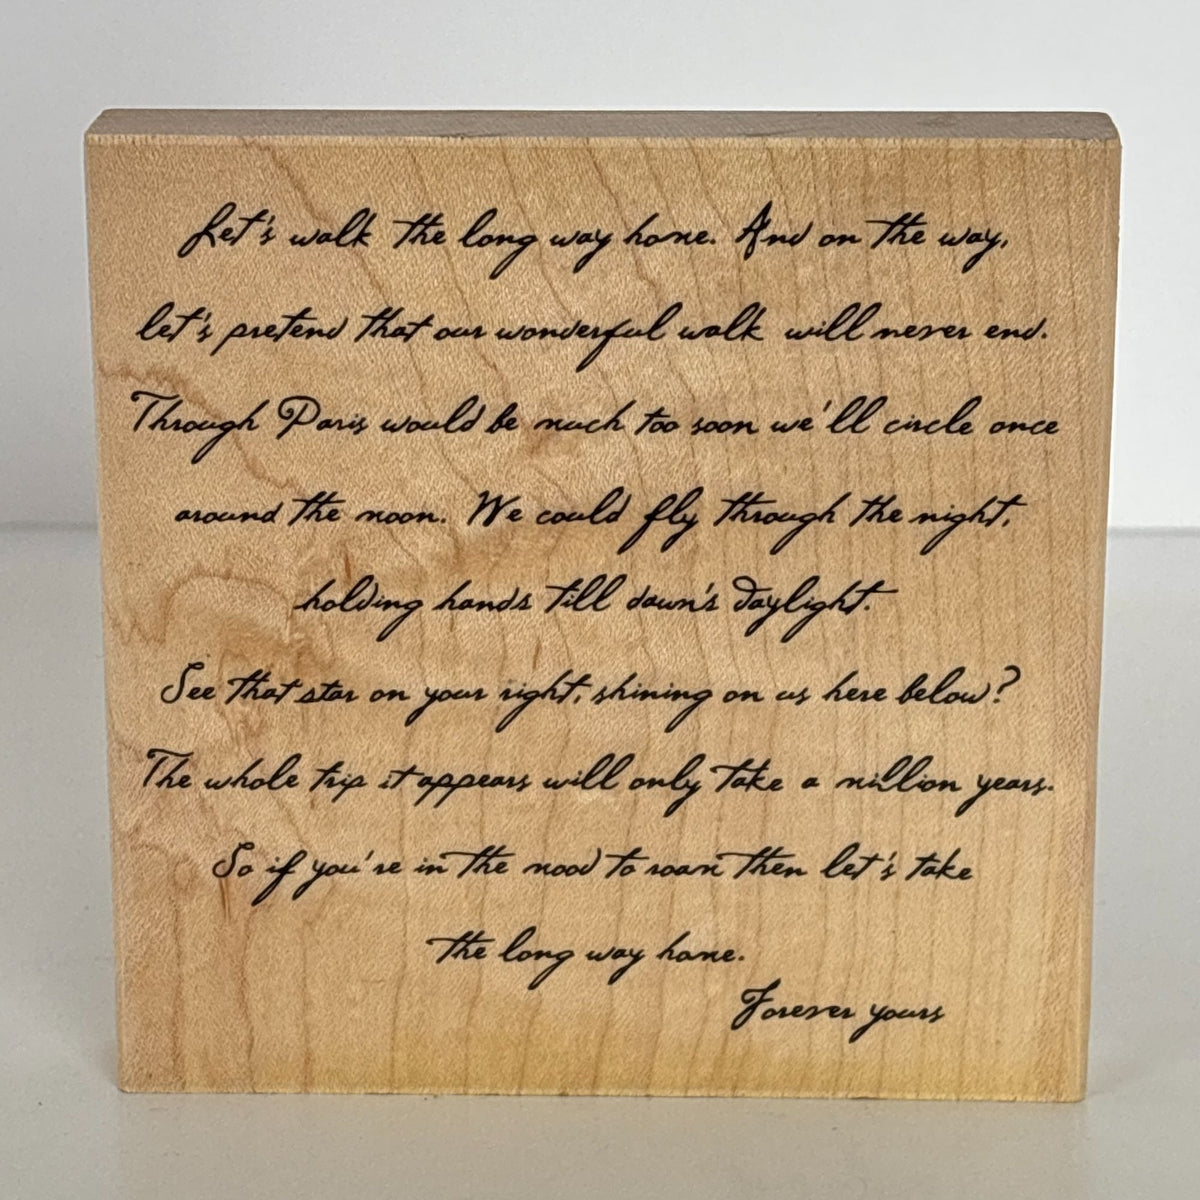 Let's walk the long way home. And on the way,
let's pretend that our wonderful walk will never end.
Through Paris would be much too soon we'll circle once
around the moon. We could fly through the night,
holding hands till dawn's daylight.
See that star on your right, shining on us here below?
The whole trip it appears will only take a million years.
So if you're in the mood to roam then let's take
the long way home.
Forever yours